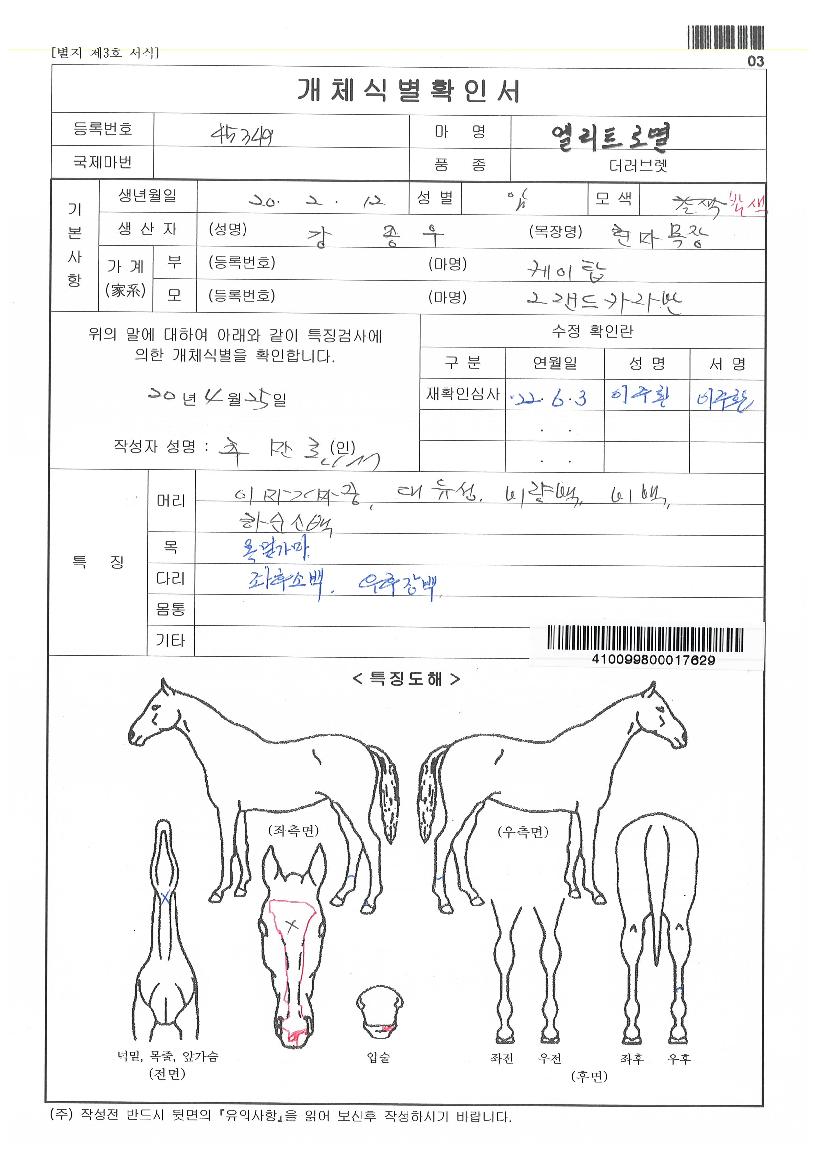 [별지 제3호 서식]
03
개체식별확인서
등록번호 45349 마 명 엘리트로멸
국제마번 품 종 더러브렛
기본사항
생년월일 20. 2. 12 성별 암 모색 갈색 밤색
생산자 (성명) 강종우 (목장명) 현마목장
가계(家系) 부 (등록번호) (마명) 케이탑
모 (등록번호) (마명) 그랜드카라반
위의 말에 대하여 아래와 같이 특징검사에
의한 개체식별을 확인합니다.
20년 4월 25일
작성자 성명 : (인)
수정 확인란
구 분 연월일 성 명 서 명
재확인심사 '22. 6. 3 이주환 이주환
특 징
머리 대유성, 비량백, 비백,
하순소백
목 목말가마
다리 좌후소백, 우후장백
몸통
기타
410099800017629
< 특징도해 >
(좌측면) (우측면)
너밑, 목줄, 앞가슴
(전면)
입술
좌진 우전 좌후 우후
(후면)
(주) 작성전 반드시 뒷면의 『유의사항』을 읽어 보신후 작성하시기 바랍니다.